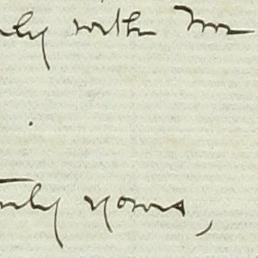 ly with Mr
Truly yours,